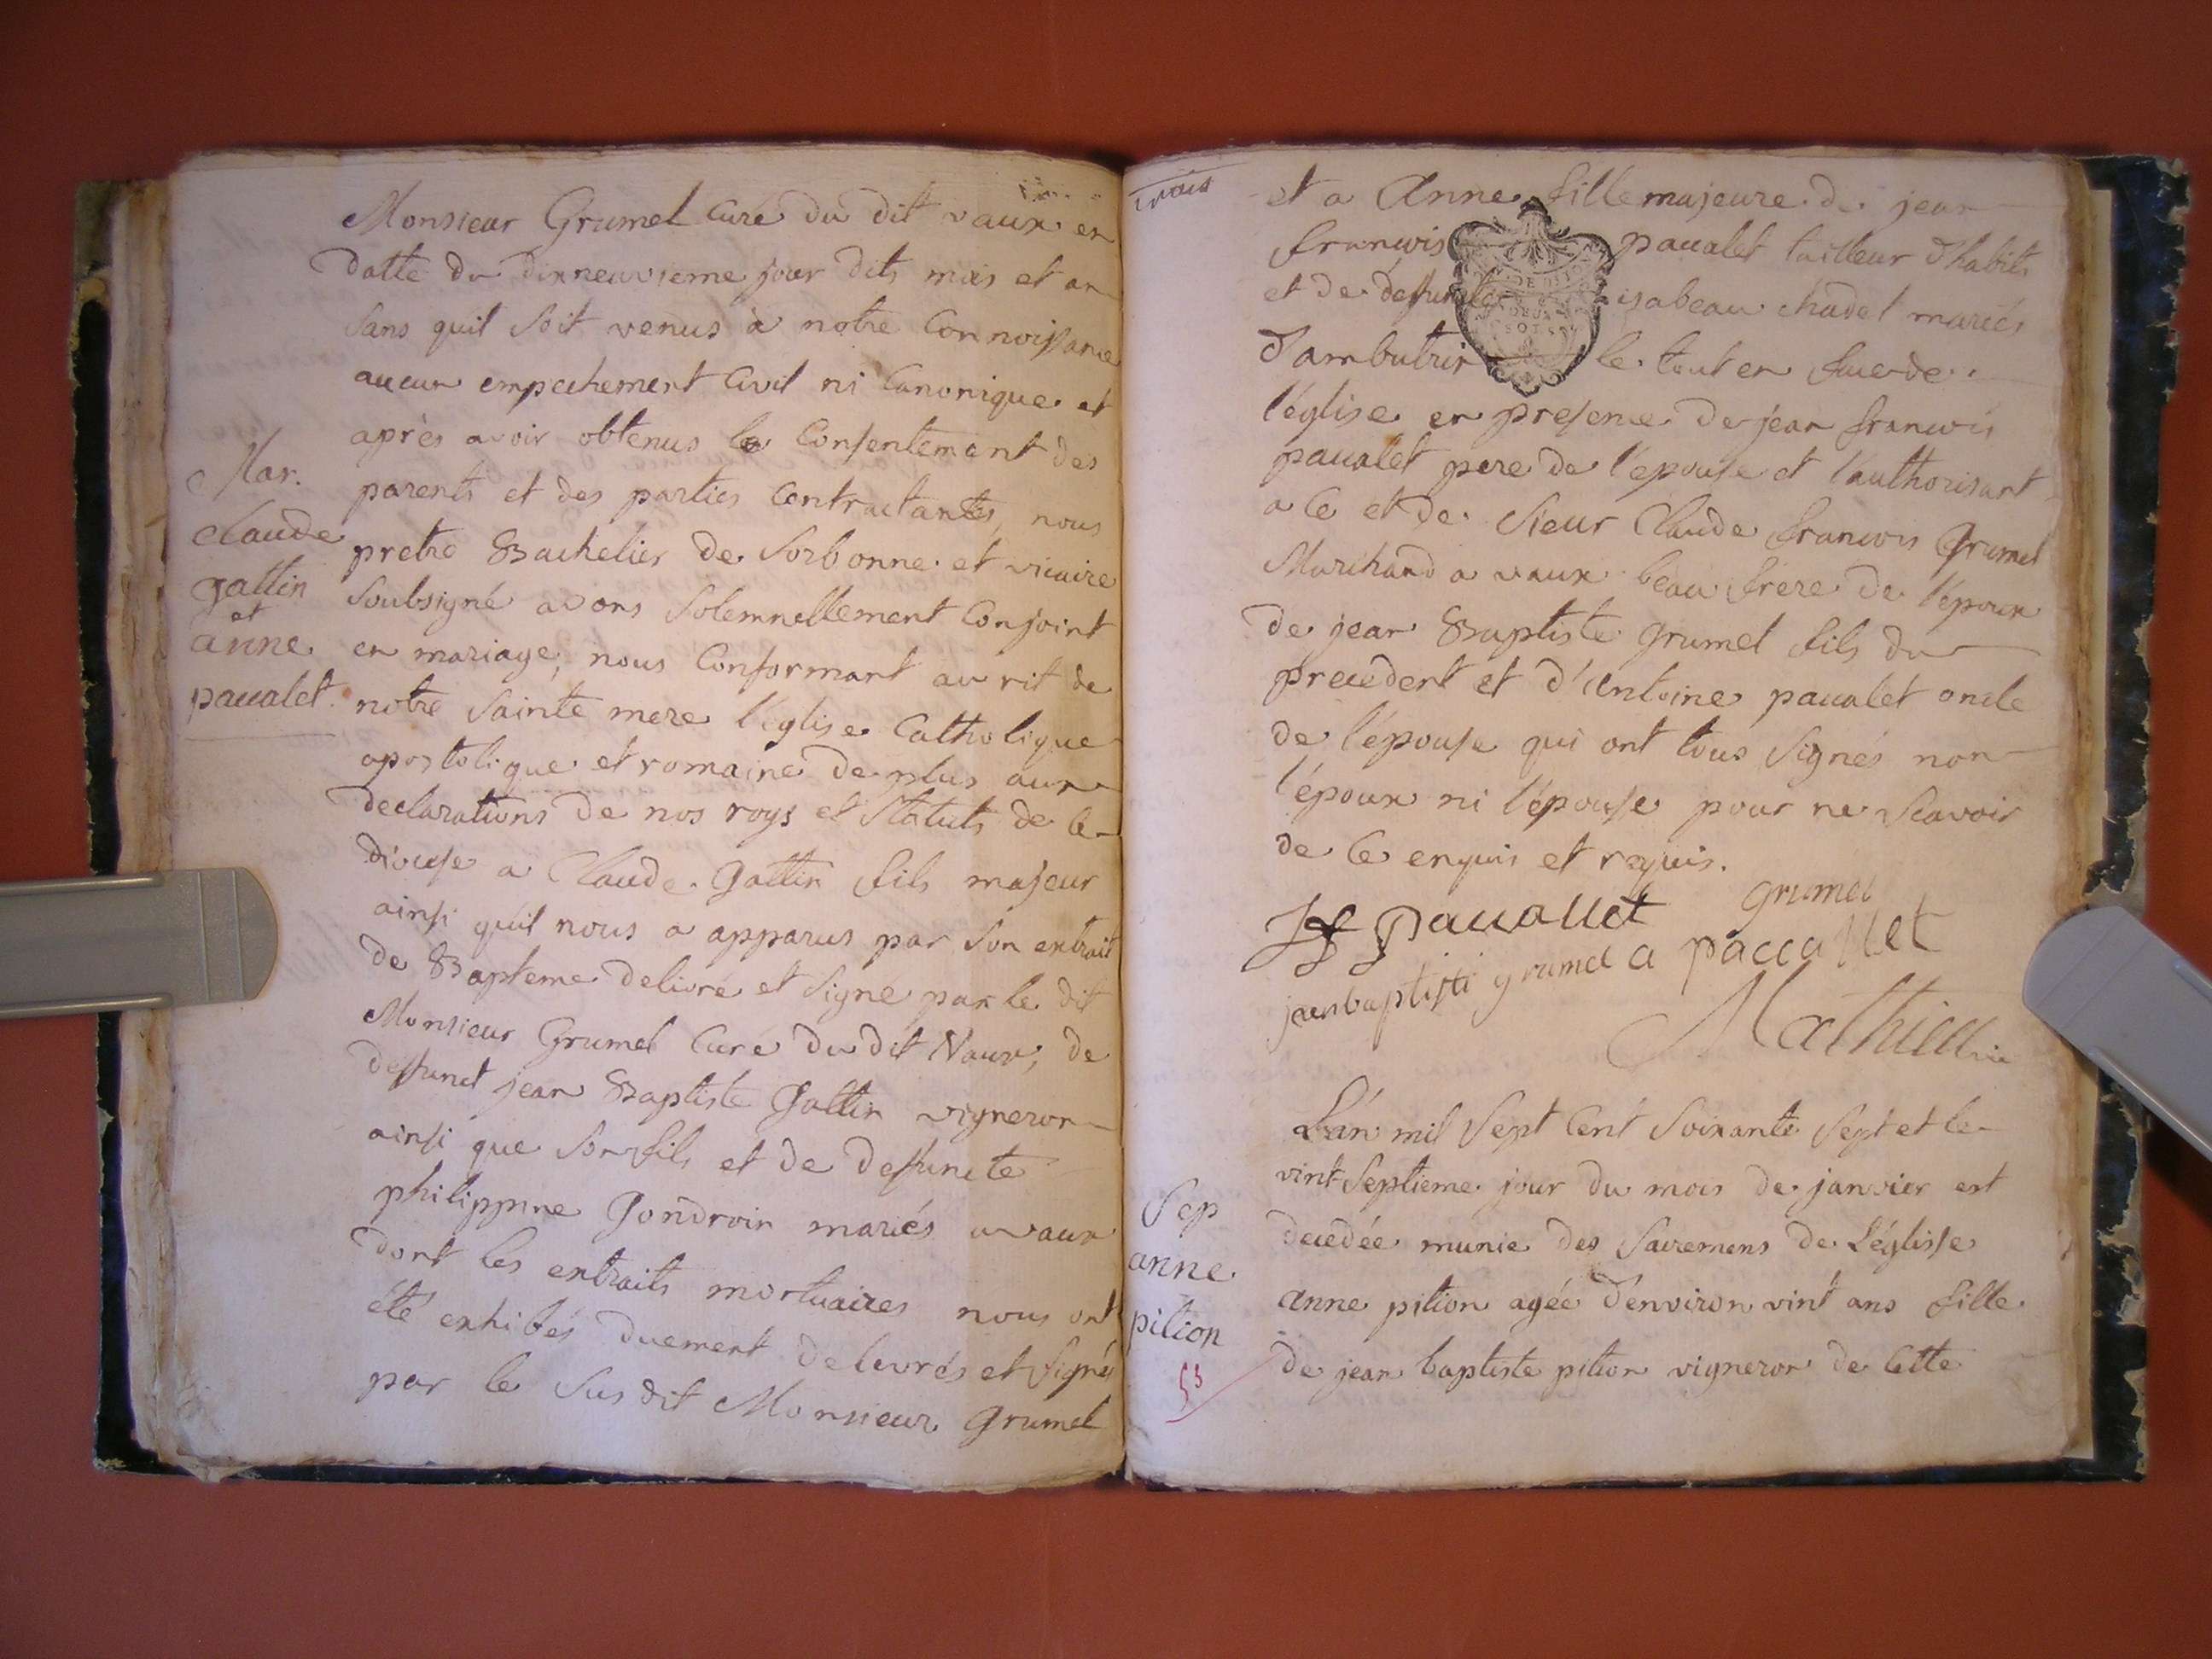 Monsieur Grumel Curé du dit vaux en
datte du dixneuvieme jour dits mois et an
sans qu'il soit venus à notre Connoissance
aucun empechement Civil ni Canonique et
après avoir obtenus le Consentement des
parents et des parties Contractantes, nous
pretre Bachelier de Sorbonne et vicaire
soubsigné avons solemnellement Conjoint
en mariage, nous Conformant au rit de
notre sainte mere l'église Catholique
apostolique et romaine de plus aux
declarations de nos roys et statuts de ce
diocese a Claude Gattin fils majeur
ainsi qu'il nous a apparus par son extrait
de Bapteme delivré et signe par le dit
Monsieur Grumel Curé du dit Vaux, de
deffunct jean Baptiste Gattin vigneron
ainsi que son fils et de deffuncte
philippine Gondroin mariés a vaux
dont les extraits mortuaires nous ont
été exhibés duement delivrés et signés
par le susdit Monsieur Grumel
Mar.
Claude
gattin
et
anne
pacalet
trois
et a Anne fille majeure de jean
francois pacalet tailleur d'habits
et de deffuncte isabeau chadel mariés
d'ambutrix le tout en face de
l'église en presence de jean francois
pacalet pere de l'epouse et l'authorisant
a ce et de sieur Claude francois Grumel
Marchand a vaux beau frere de l'époux
de jean Baptiste grumel fils du
precedent et d'antoine pacalet oncle
de l'épouse qui ont tous signés non
l'époux ni l'épouse pour ne scavoir
de ce enquis et requis.
Jf pacallet grumel
jeanbaptisti grumel a paccallet
Mathieu vic
L'an mil sept cent soixante sept et le
vint septieme jour du mois de janvier est
decedée munie des sacremens de l'églisse
anne pition agée d'environ vint ans fille
de jean baptiste pition vigneron de cette
Sep
anne
pition
53